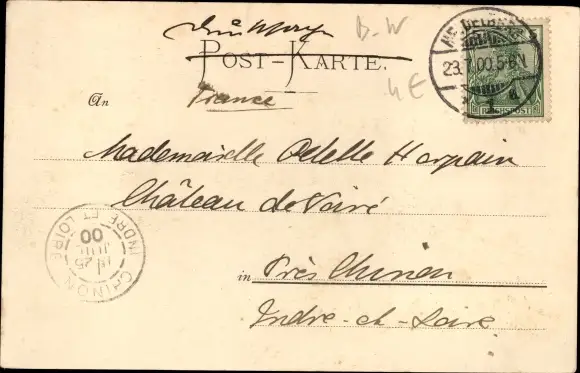 Drucksache
B-W
POST-KARTE.
4 E
An
France
HEIDELBERG
23.7.00.5-6N
1
REICHSPOST
Mademoiselle Odette Harpain
Château de Voiré
in Près Chinon
Indre-et-Loire
CHINON
25
JUIL
00
INDRE ET LOIRE